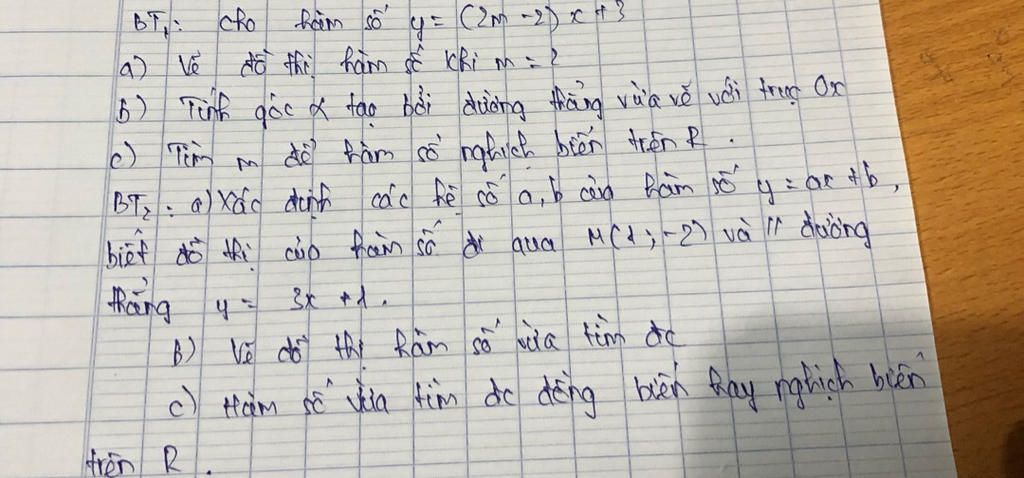 BT1: Cho hàm số y = (2m - 2) x + 3
a) Vẽ đồ thị hàm số khi m = 2
b) Tính góc α tạo bởi đường thẳng vừa vẽ với trục Ox
c) Tìm m để hàm số nghịch biến trên R.
BT2: a) Xác định các hệ số a, b của hàm số y = ax + b,
biết đồ thị của hàm số đi qua M(1; -2) và // đường
thẳng y = 3x + 1.
b) Vẽ đồ thị hàm số vừa tìm đc
c) Hàm số vừa tìm đc đồng biến hay nghịch biến
trên R.